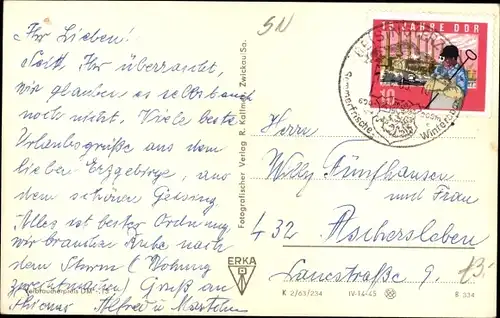 Ihr Lieben!
Seid Ihr überrascht,
wir glauben es selbst auch
noch nicht. Viele beste
Urlaubsgrüße aus dem
lieben Erzgebirge, aus
dem schönen Geising
Alles ist bester Ordnung
wir brauchen Ruhe nach
dem Sturm (Wohnung
Gruß an
Alfred u
Verbraucherpreis DM -,15
Fotografischer Verlag R. Kallmer, Zwickau/Sa.
ERKA
SN
15 JAHRE DDR
10
GEISING
Sommerfrische
Wintersport
Herrn
Willy Fünfhausen
und Frau
432 Aschersleben
9.
13.-
K 2/63/234 IV-14-45 B 334